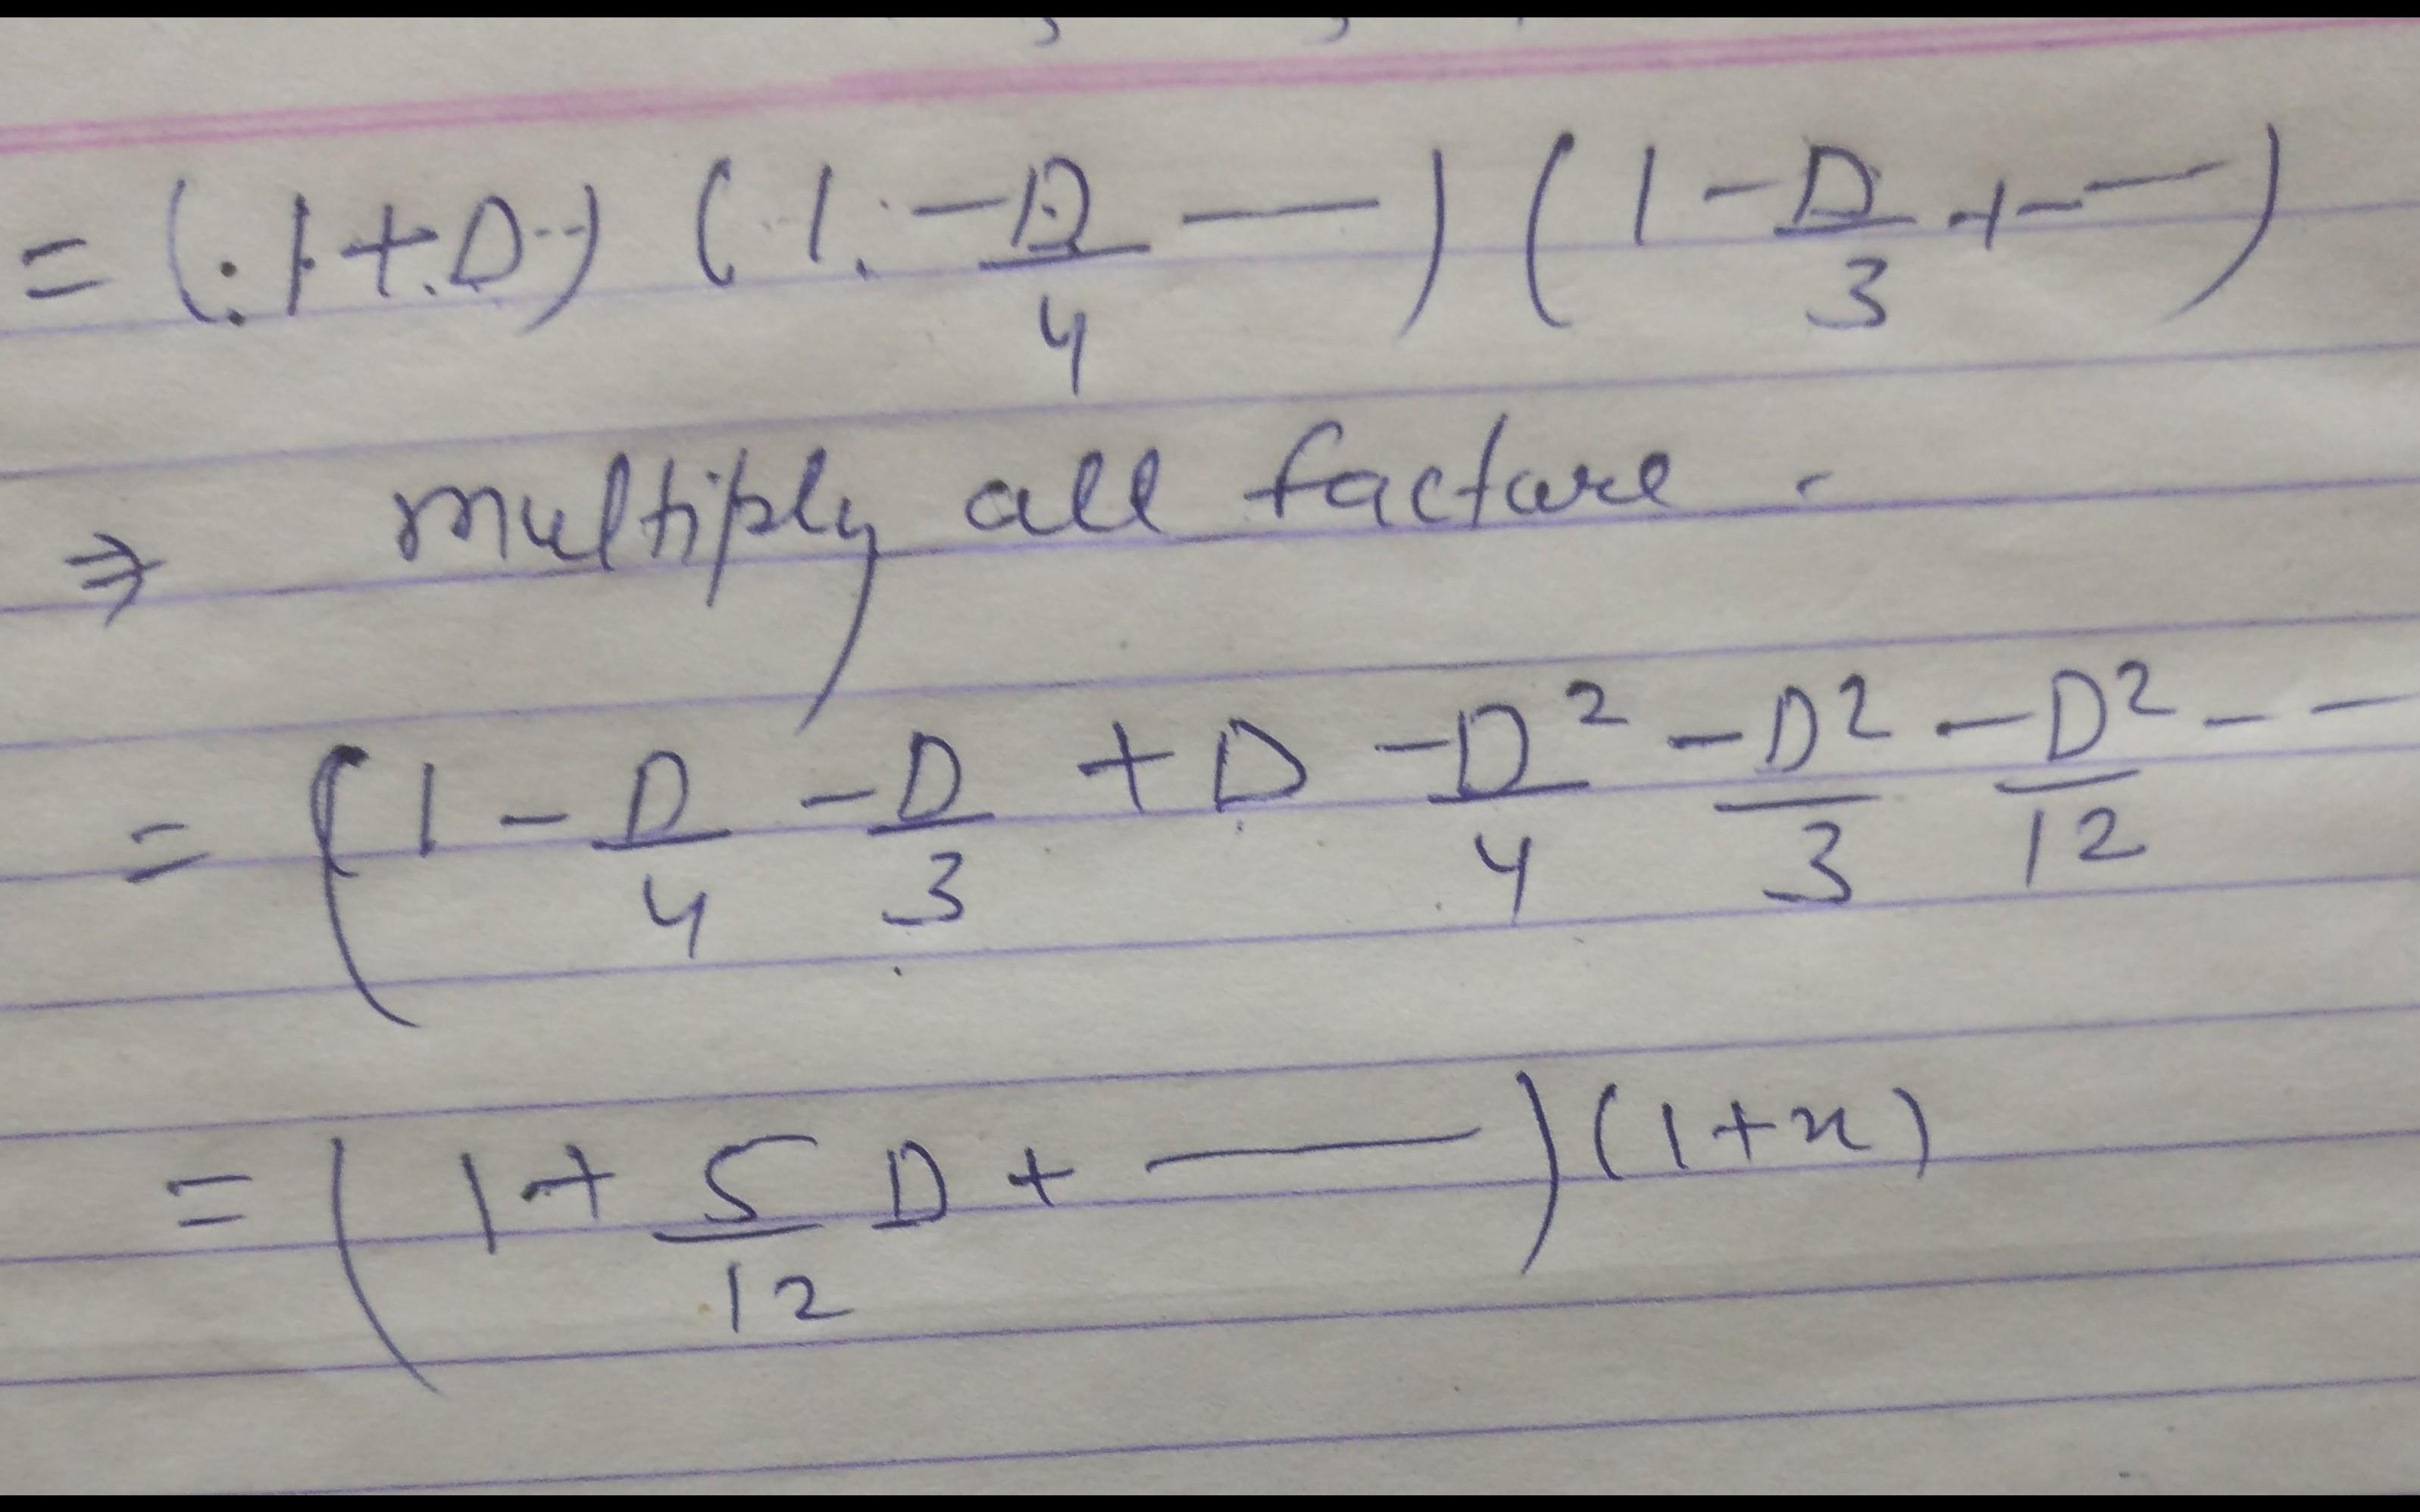 = (1+D) (1 - D/4 ——) (1 - D/3 + - —)
⇒ multiply all facture.
= (1 - D/4 - D/3 + D - D²/4 - D²/3 - D²/12 - —
= (1 + 5/12 D + ——) (1+x)